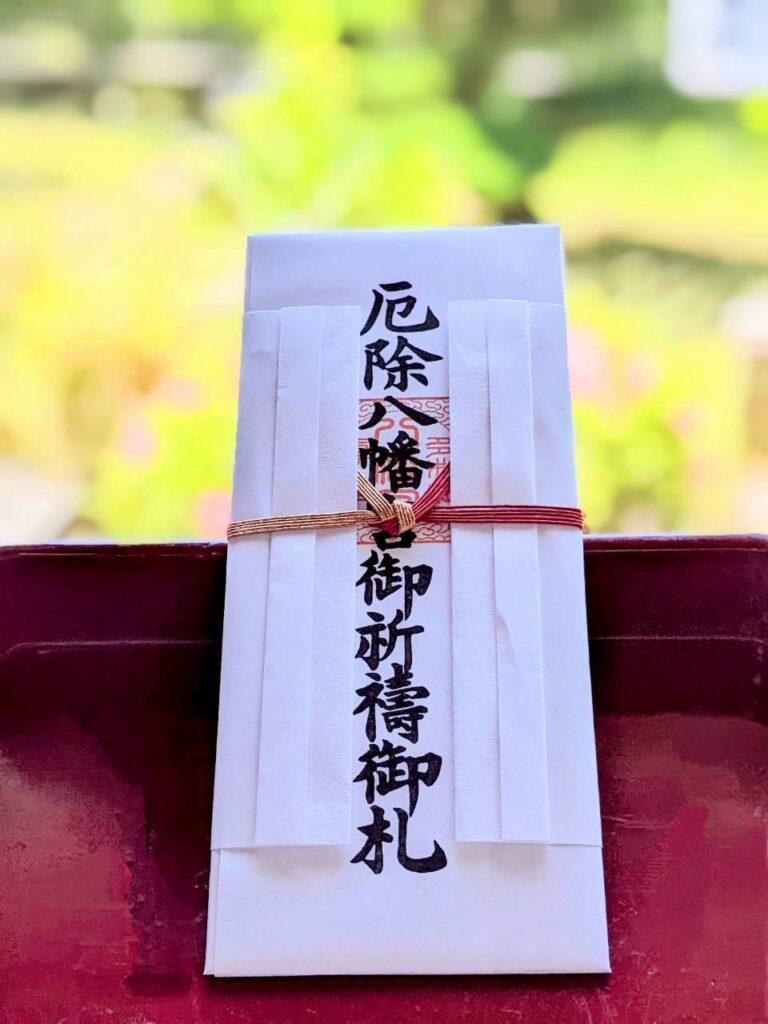 厄除八幡宮御祈禱御札